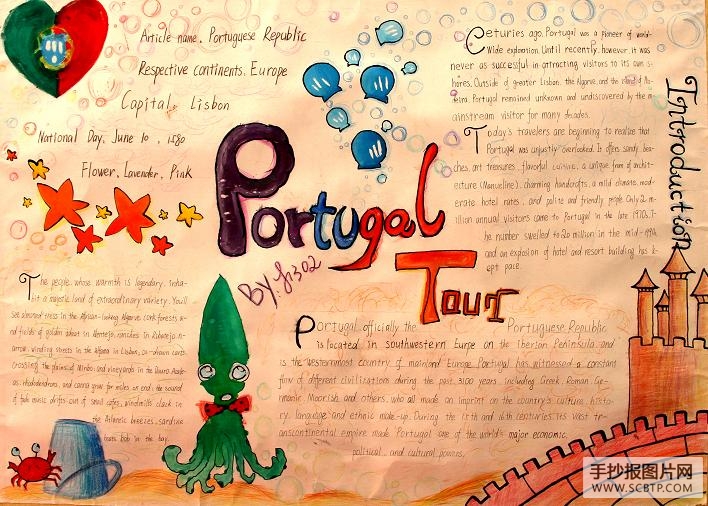 Article name. Portuguese Republic
Respective continents. Europe
Capital. Lisbon
National Day. June 10, 1580
Flower. Lavender, Pink
Portugal
Tour
By: 
Introduction
Ceturies ago, Portugal was a pioneer of world-
wide exploration. Until recently, however it was
never as successful in attracting visitors to its own s-
hores. Outside of greater Lisbon, the Algarve, and the island of Ma-
deira, Portugal remained unknown and undiscovered by the m-
ainstream visitor for many decades.
Today's travelers are beginning to realize that
Portugal was unjustly overlooked. It offers sandy bea-
ches, art treasures, flavorful cuisine, a unique form of archit-
ecture (Manueline), charming handcrafts, a mild climate, mod-
erate hotel rates, and polite and friendly people. Only 2 m-
illion annual visitors came to Portugal in the late 1970s. T-
he number swelled to 20 million in the mid-1990s,
and an explosion of hotel and resort building has k-
ept pace.
The people, whose warmth is legendary, inha-
bit a majestic land of extraordinary variety. You'll
see almond trees in the African-looking Algarve, cork forests a-
nd fields of golden wheat in Alentejo, ranches in Ribatejo, n-
arrow, winding streets in the Alfama in Lisbon, ox-drawn carts
crossing the plains of Minho, and vineyards in the Douro. Azale-
as, rhododendrons, and canna grow for miles on end; the sound
of fado music drifts out of small cafes; windmills clack in
the Atlantic breezes; sardine
boats bob in the bay.
Portugal officially the Portuguese Republic
is located in southwestern Europe on the Iberian Peninsula. and
is the westernmost country of mainland Europe Portugal has witnessed a constant
flow of different civilizations during the past 3100 years, including Greek, Roman, Ge-
rmanic, Moorish and others, who all made an imprint on the country's culture, histo-
ry, language and ethnic make-up. During the 15 th and 16 th centuries, its vast tr-
anscontinental empire made Portugal one of the world's major economic,
political, and cultural powers.
手抄报图片网
WWW.SCBTP.COM